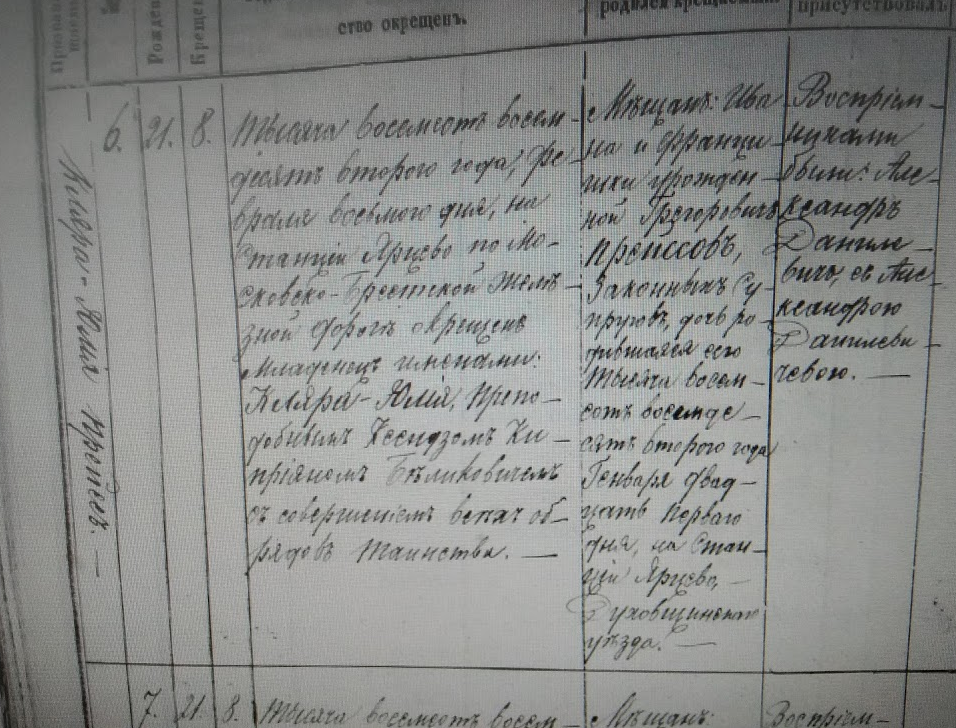 Рожден
Крещен
ство окрещенъ.
родился крещаемый
присутствовалъ
Кляра-Юлія Прейсъ. —
6. 21. 8.
Тысяча восемсотъ восем-
десятъ второго года, Фе-
враля восьмого дня, на
Станціи Ярцево по Мо-
сковско-Брестской Желѣ-
зной дорогѣ окрещенъ
младенецъ именами:
Кляра-Юлія, Препо-
добнымъ Ксендзомъ Ки-
пріяномъ Бѣликовичемъ
съ совершеніемъ всѣхъ об-
рядовъ таинства. —
Мѣщанъ: Ива
на и Францы-
шки урожден-
ной Грегоровичъ
Прейссовъ,
Законныхъ Су-
пруговъ, дочь ро-
дившаяся сего
Тысяча восем-
сотъ восемде-
сятъ второго года
Генваря двад-
цать перваго
дня, на Стан-
ціи Ярцево,
Духовщинскаго
уѣзда. —
Воспріем-
никами
были: Але-
ксандръ
Даниле-
вичъ, съ Але-
ксандрою
Данилеви-
чевою. —
7. 21. 8.
Тысяча восемсотъ восем-
Мѣщанъ:
Воспріем-